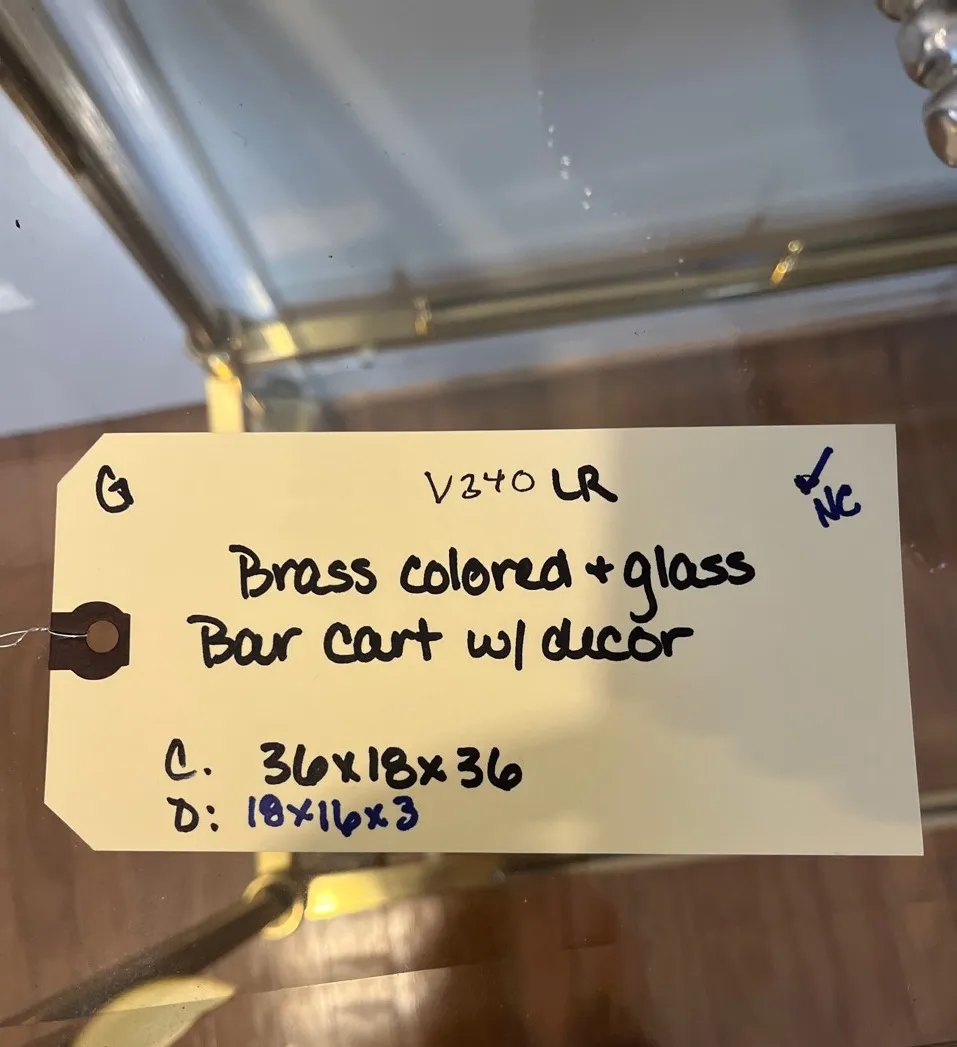 G V340 LR ✓
NC
Brass colored + glass
Bar cart w/ decor
C. 36x18x36
D: 18x16x3